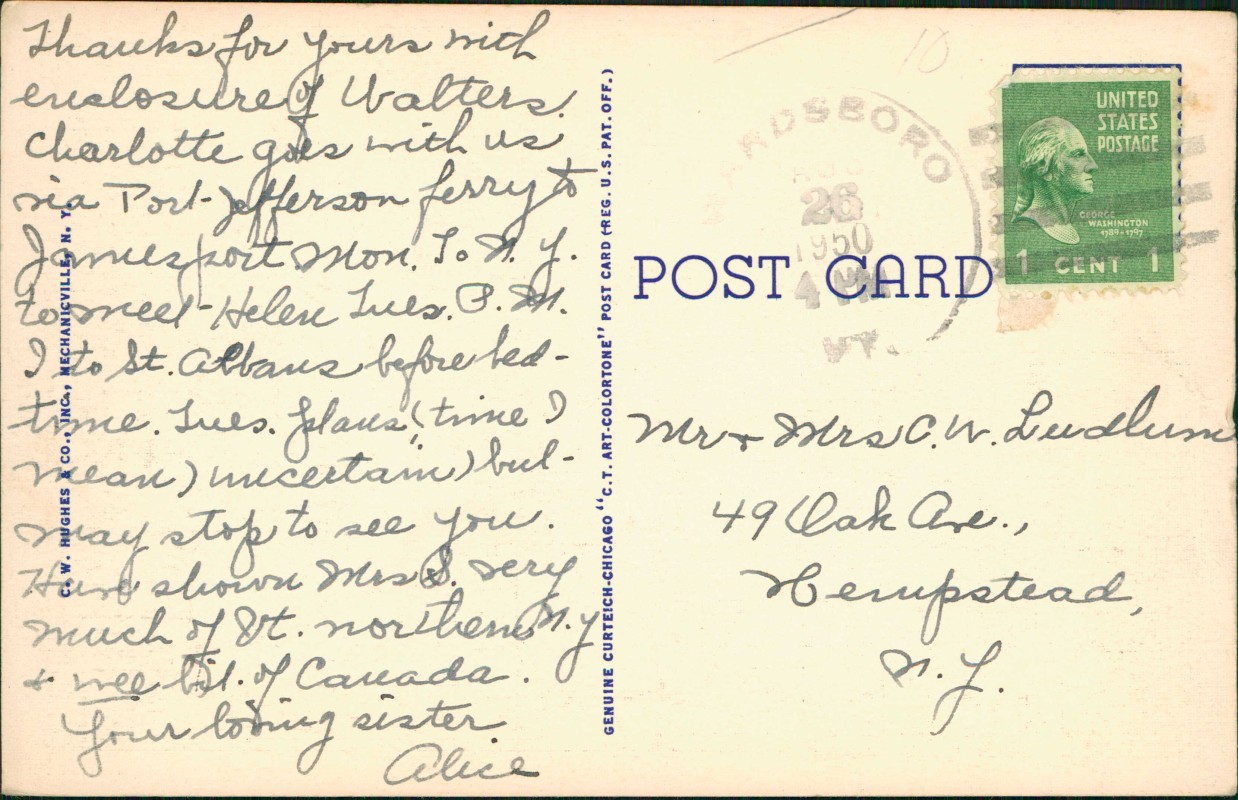 Thanks for yours with
enclosure of Walters.
Charlotte goes with us
via Port Jefferson ferry to
Jamesport Mon. To N. Y.
to meet Helen Tues. P. M.
I to St. Albans before bed-
time. Tues. plans (time I
mean) uncertain) but
may stop to see you.
Have shown Mrs S. very
much of Vt. northern N. Y
& wee bit of Canada.
Your loving sister
Alice
C. W. HUGHES & CO., INC., MECHANICVILLE, N. Y.
GENUINE CURTEICH-CHICAGO "C. T. ART-COLORTONE" POST CARD (REG. U. S. PAT. OFF.)
10
ARDSBORO
AUG
26
1950
4 PM
VT.
UNITED
STATES
POSTAGE
GEORGE
WASHINGTON
1789-1797
1 CENT 1
POST CARD
Mr & Mrs C. W. Ludlum
49 Oak Ave.,
Hempstead,
N. Y.